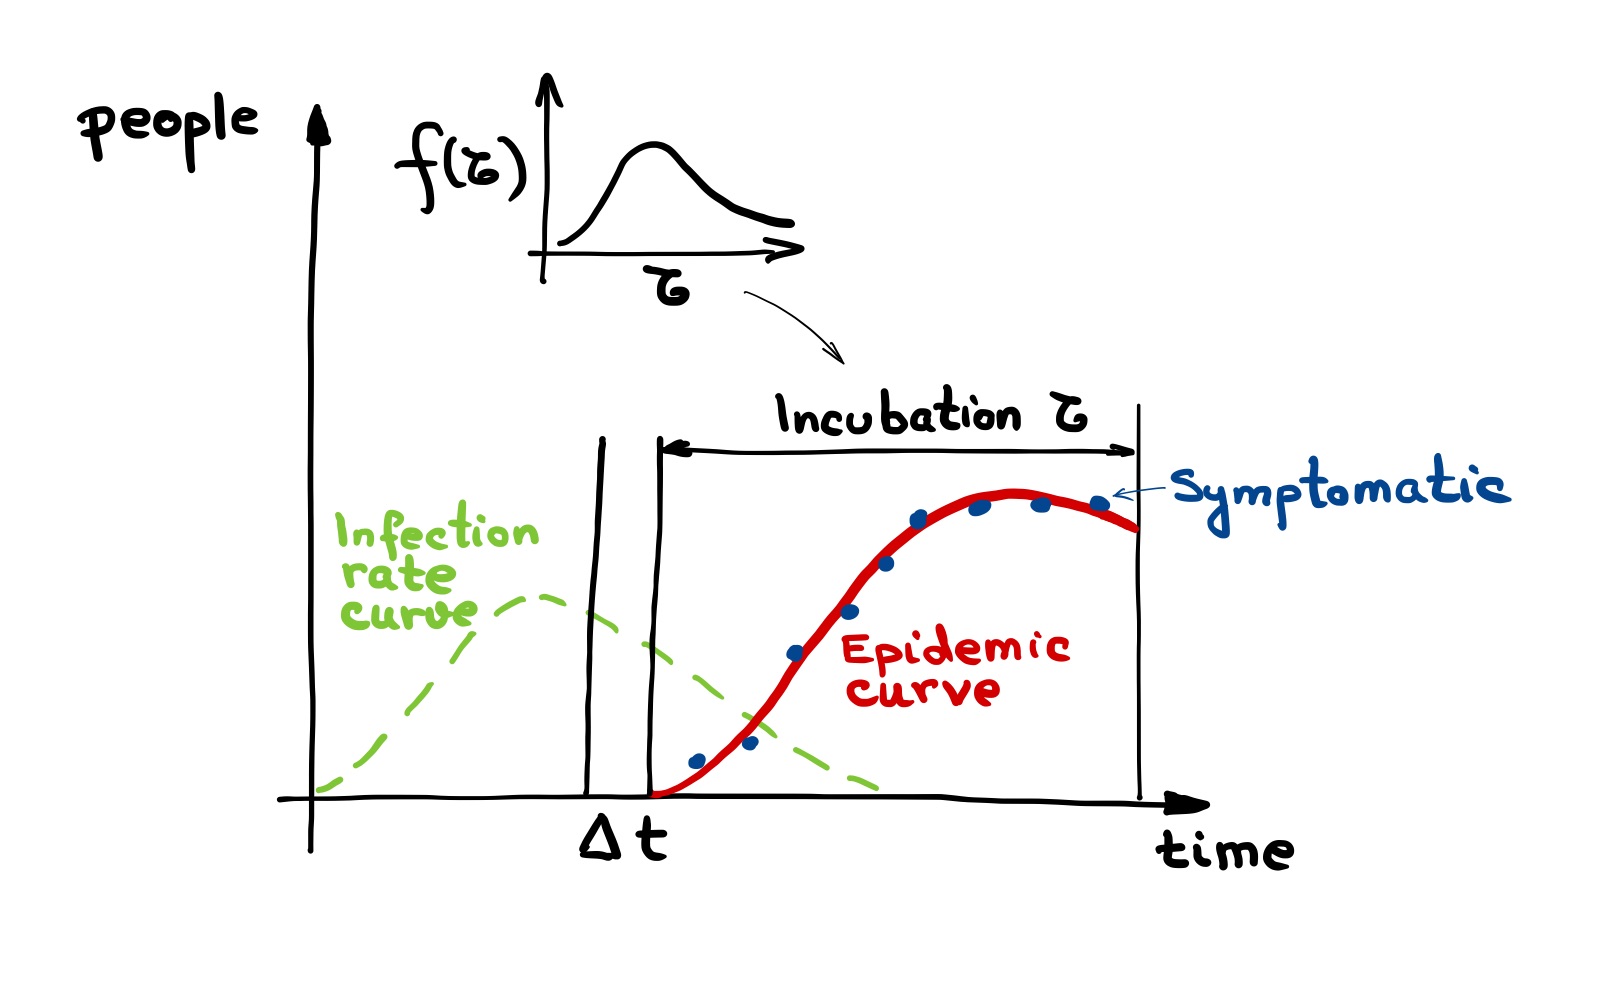 people
f(τ)
τ
Incubation τ
Symptomatic
Infection
rate
curve
Epidemic
curve
Δt
time